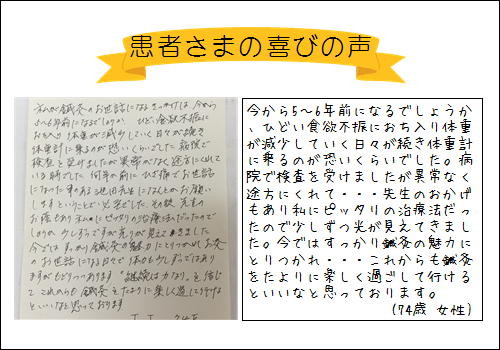 患者さまの喜びの声
私が鍼灸のお世話になるきっかけは 今から
5〜6年前になるでしょうか、ひどい食欲不振に
おち入り体重が減少していく日々が続き
体重計に乗るのが恐いくらいでした。病院で
検査を受けましたが異常がなく途方にくれて
いる時でした 何年か前にひざ痛でお世話
になった事のある 先生になんとかお願い
しますということで その後 先生の
お蔭もあり私にピッタリの治療法だったので
しょうか 少しずつですが光りが見えてきました
今ではすっかり鍼灸の魅力にとりつかれ お灸
のお世話になる日々で 体力も少しずつではあり
ますがもどりつつあります “継続は力なり”を信じ
て これからも鍼灸をたよりに楽しく過して行ける
といいなと思っております
今から5〜6年前になるでしょうか
、ひどい食欲不振におち入り体重
が減少していく日々が続き体重計
に乗るのが恐いくらいでした。病
院で検査を受けましたが異常なく
途方にくれて・・・先生のおかげ
もあり私にピッタリの治療法だっ
たので少しずつ光が見えてきまし
た。今ではすっかり鍼灸の魅力に
とりつかれ・・・これからも鍼灸
をたよりに楽しく過ごして行ける
といいなと思っております。
(74歳 女性)